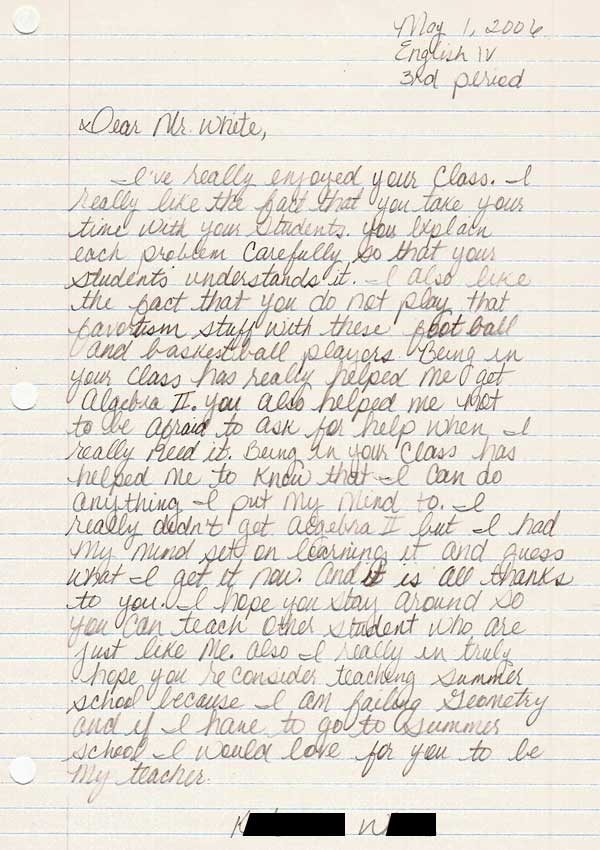 May 1, 2006
English IV
3rd period
Dear Mr. White,
I've really enjoyed your class. I
really like the fact that you take your
time with your students. you explain
each problem carefully so that your
students understands it. I also like
the fact that you do not play that
favortism stuff with these football
and basketball players. Being in
your class has really helped me get
Algebra II. you also helped me not
to be afraid to ask for help when I
really need it. Being in your class has
helped me to know that I can do
anything I put my mind to. I
really didn't get algebra II but I had
my mind set on learning it and guess
what I get it now. And it is all thanks
to you. I hope you stay around so
you can teach other student who are
just like me. also I really in truly
hope you reconsider teaching summer
school because I am failing Geometry
and if I have to go to summer
school I would love for you to be
my teacher.